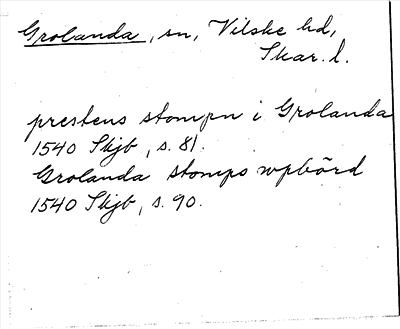 Grolanda, sn, Vilske hd,
Skar. l.
prestens stompn i Grolanda
1540 Skjb, s. 81.
Grolanda stomps wpbörd
1540 Skjb, s. 90.